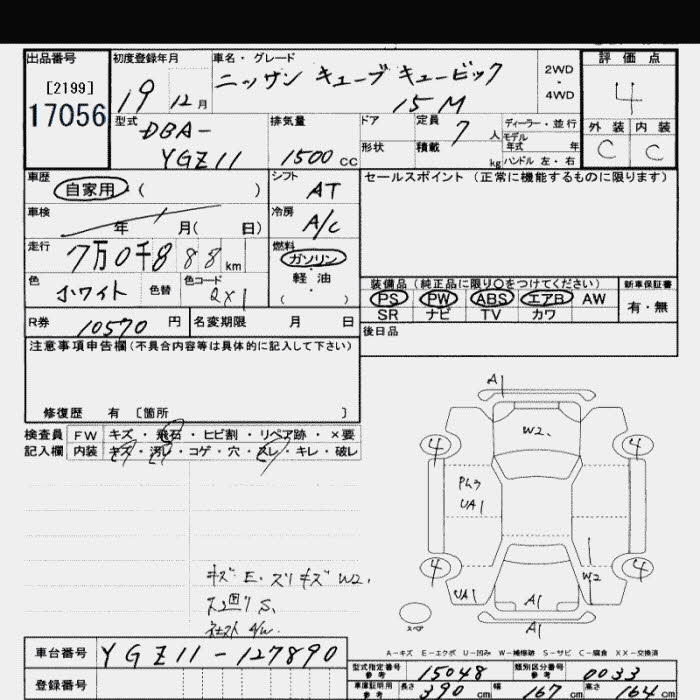 出品番号 初度登録年月 車名・グレード 評価点
[2199] ニッサン キューブキュービック 2WD・4WD 4
17056 19 12月 15M
型式 排気量 ドア 定員 7人 ディーラー・並行 外装 内装
DBA- モデル年式 年 C C
YGZ11 1500cc 形状 積載 kg ハンドル 左・右
車歴 自家用・( ) シフト AT セールスポイント (正常に機能するものに限ります)
車検 年 月( 日) 冷房 A/C
走行 7万0千888km 燃料 ガソリン・軽油・( )
色 ホワイト 色替 色コード QX1 装備品 (純正品に限り○をつけてください) 新車保証書
PS PW ABS エアB AW 有・無
SR ナビ TV カワ
R券 10570円 名変期限 月 日 後日品
注意事項申告欄 (不具合内容等は具体的に記入して下さい)
修復歴 有 〔箇所 〕
検査員 FW キズ・飛石・ヒビ割・リペア跡・×要
記入欄 内装 キズ・汚レ・コゲ・穴・スレ・キレ・破レ
A1
W2.
4 4
UA1
4 4
UA1 W2
A1
スペア A1
キズ E. スリキズ W2.
S.
A-キズ E-エクボ U-凹み W-補修跡 S-サビ C-腐食 XX-交換済
車台番号 YGZ11-127890
登録番号
型式指定番号 参考 15048 類別区分番号 参考 0033
車庫証明用 参考 長さ 390cm 幅 167cm 高さ 164cm